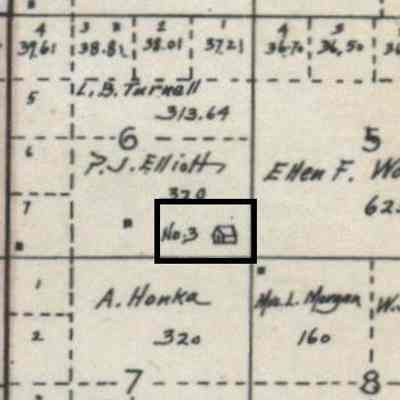 4 3 2 1 4 3
39.61 38.82 38.01 37.21 36.70 36.50 36
5 L. B. Turnell
313.64
6 5
6 P. J. Elliott Ellen F. Wo
320
7 No. 3 62
1 A. Honka Mrs. L. Morgan W.
2 320 160
7 8